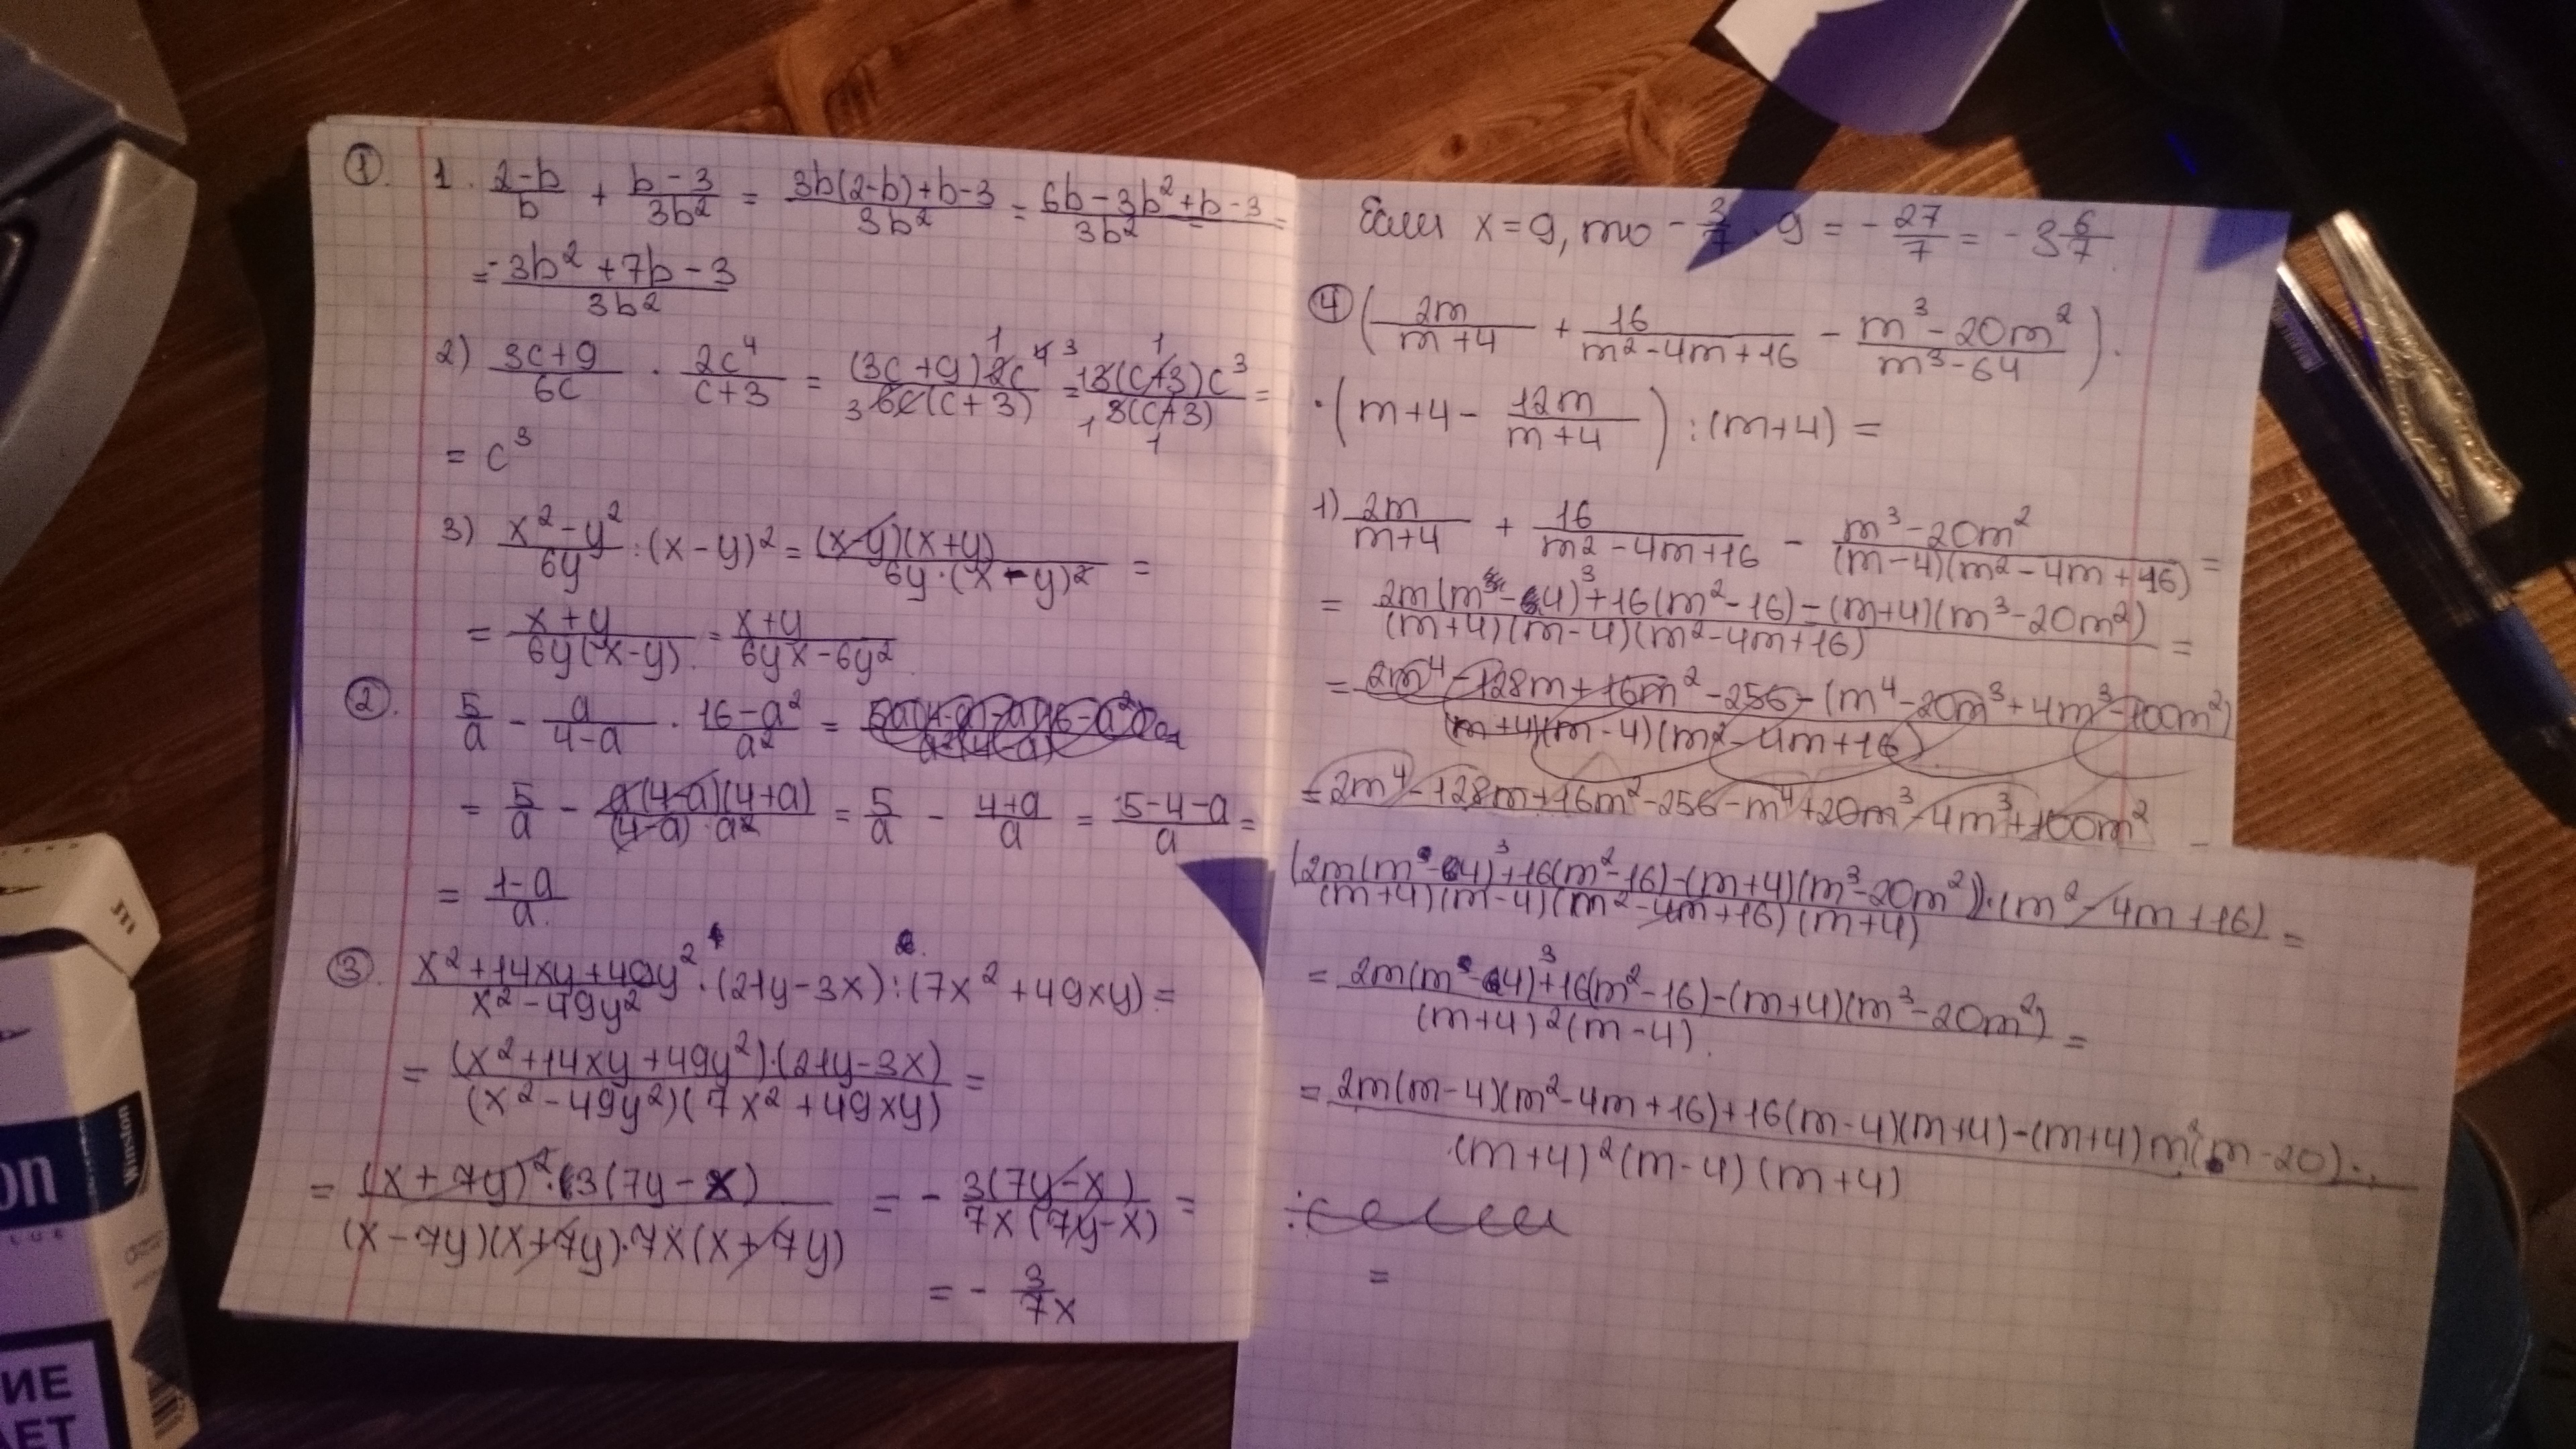 ① 1. (2-b)/b + (b-3)/(3b²) = (3b(2-b)+b-3)/(3b²) = (6b-3b²+b-3)/(3b²) =
= (-3b²+7b-3)/(3b²)
2) (3c+9)/(6c) · (2c⁴)/(c+3) = ((3c+9)2c⁴)/(6c(c+3)) = (3(c+3)c³)/(3(c+3)) =
= c³
3) (x²-y²)/(6y) : (x-y)² = ((x-y)(x+y))/(6y·(x-y)²) =
= (x+y)/(6y(x-y)) = (x+y)/(6yx-6y²)
②. 5/a - a/(4-a) · (16-a²)/a² =
= 5/a - (a(4-a)(4+a))/((4-a)·a²) = 5/a - (4+a)/a = (5-4-a)/a =
= (1-a)/a.
③. (x²+14xy+49y²)/(x²-49y²) · (21y-3x) : (7x²+49xy) =
= ((x²+14xy+49y²)·(21y-3x))/((x²-49y²)(7x²+49xy)) =
= ((x+7y)²·3(7y-x))/((x-7y)(x+7y)·7x(x+7y)) = - (3(7y-x))/(7x(7y-x)) =
= - 3/7x
Если x=9, то - 3/7 · 9 = - 27/7 = - 3 6/7.
④ (2m/(m+4) + 16/(m²-4m+16) - (m³-20m²)/(m³-64)) ·
· (m+4 - 12m/(m+4)) : (m+4) =
1) 2m/(m+4) + 16/(m²-4m+16) - (m³-20m²)/((m-4)(m²-4m+16)) =
= (2m(m-4)³+16(m²-16)-(m+4)(m³-20m²))/((m+4)(m-4)(m²-4m+16)) =
= (2m⁴-128m+16m²-256-(m⁴-20m³+4m³-100m²))/((m+4)(m-4)(m²-4m+16))
= 2m⁴-128m+16m²-256-m⁴+20m³-4m³+100m²
((2m(m-4)³+16(m²-16)-(m+4)(m³-20m²))·(m²-4m+16))/((m+4)(m-4)(m²-4m+16)(m+4)) =
= (2m(m-4)³+16(m²-16)-(m+4)(m³-20m²))/((m+4)²(m-4)) =
= (2m(m-4)(m²-4m+16)+16(m-4)(m+4)-(m+4)m²(m-20)·.)/((m+4)²(m-4)(m+4))
=
on
Winston
JTI
ИЕ
АЕТ